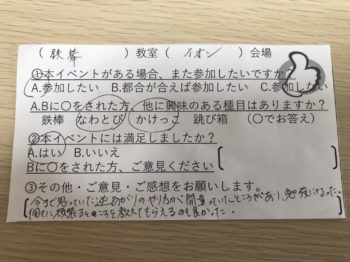 ( 鉄棒 ) 教室 ( イオン ) 会場
①本イベントがある場合、また参加したいですか
A.参加したい B.都合が合えば参加したい C.参加しない
A.Bに〇をされた方、他に興味のある種目はありますか?
鉄棒 なわとび かけっこ 跳び箱 (〇でお答え)
②本イベントには満足しましたか?
A.はい B.いいえ
Bに〇をされた方、ご意見ください
③その他・ご意見・ご感想をお願いします。
今まで思っていた逆あがりのやり方が間違っていたところがあり、勉強になった。
個々に頑張るところを教えてもらえるのも良かった。